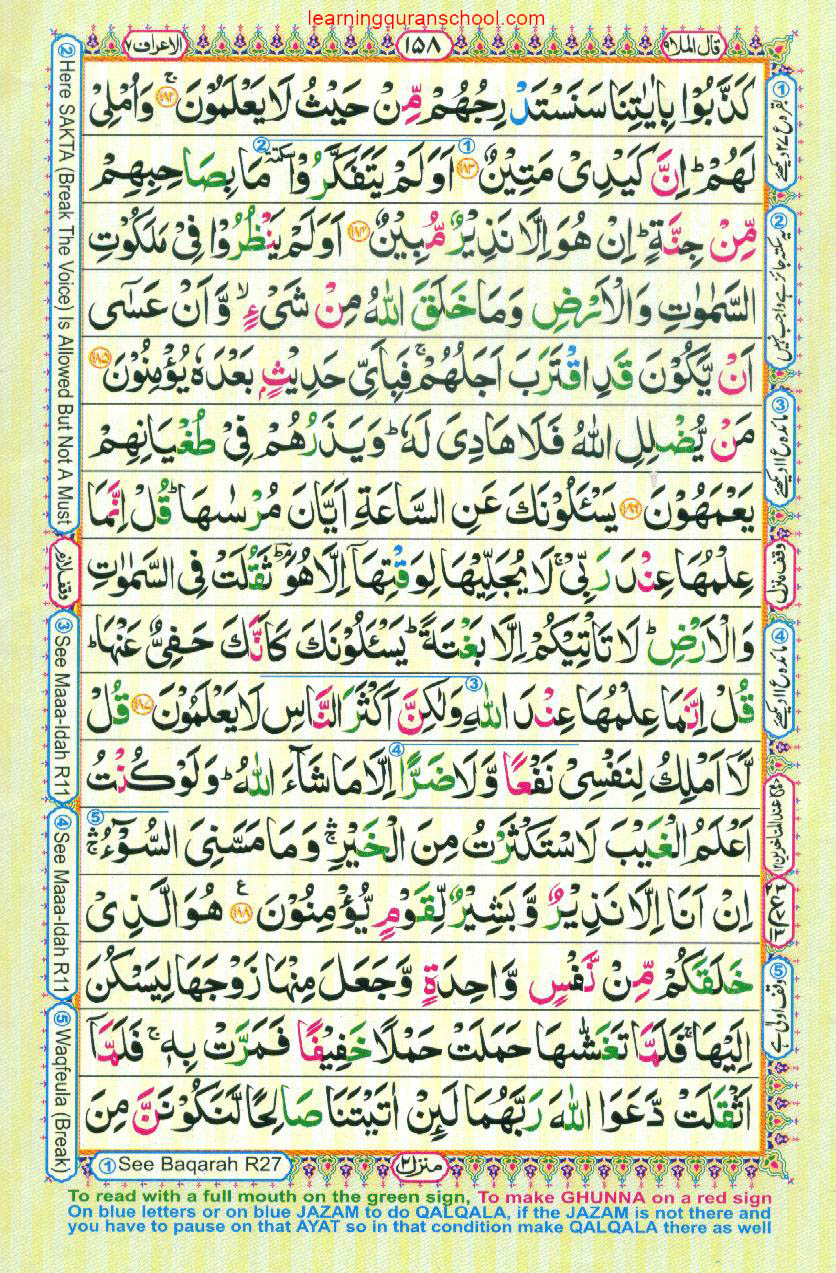 learningquranschool.com
قال الملا۹
۱۵۸
الاعراف۷
كَذَّبُوْا بِاٰيٰتِنَا سَنَسْتَدْرِجُهُمْ مِّنْ حَيْثُ لَا يَعْلَمُوْنَ ۚ ۱۸۲ وَاُمْلِىْ
لَهُمْ ؕ اِنَّ كَيْدِىْ مَتِيْنٌ ۱۸۳ ① اَوَلَمْ يَتَفَكَّرُوْا سكتة ② مَا بِصَاحِبِهِمْ
مِّنْ جِنَّةٍ ؕ اِنْ هُوَ اِلَّا نَذِيْرٌ مُّبِيْنٌ ۱۸۴ اَوَلَمْ يَنْظُرُوْا فِىْ مَلَكُوْتِ
السَّمٰوٰتِ وَالْاَرْضِ وَمَا خَلَقَ اللّٰهُ مِنْ شَىْءٍ ۙ وَّاَنْ عَسٰٓى
اَنْ يَّكُوْنَ قَدِ اقْتَرَبَ اَجَلُهُمْ ۚ فَبِاَىِّ حَدِيْثٍۭ بَعْدَهٗ يُؤْمِنُوْنَ ۱۸۵
مَنْ يُّضْلِلِ اللّٰهُ فَلَا هَادِىَ لَهٗ ؕ وَيَذَرُهُمْ فِىْ طُغْيَانِهِمْ
يَعْمَهُوْنَ ۱۸۶ يَسْـَٔلُوْنَكَ عَنِ السَّاعَةِ اَيَّانَ مُرْسٰىهَا ؕ قُلْ اِنَّمَا
عِلْمُهَا عِنْدَ رَبِّىْ ۚ لَا يُجَلِّيْهَا لِوَقْتِهَآ اِلَّا هُوَ ؔ ؕ ثَقُلَتْ فِى السَّمٰوٰتِ
وَالْاَرْضِ ؕ لَا تَاْتِيْكُمْ اِلَّا بَغْتَةً ؕ يَسْـَٔلُوْنَكَ كَاَنَّكَ حَفِىٌّ عَنْهَا ؕ
قُلْ اِنَّمَا عِلْمُهَا عِنْدَ اللّٰهِ ③ وَلٰكِنَّ اَكْثَرَ النَّاسِ لَا يَعْلَمُوْنَ ۱۸۷ قُلْ
لَّآ اَمْلِكُ لِنَفْسِىْ نَفْعًا وَّلَا ضَرًّا ④ اِلَّا مَا شَآءَ اللّٰهُ ؕ وَلَوْ كُنْتُ
اَعْلَمُ الْغَيْبَ لَاسْتَكْثَرْتُ مِنَ الْخَيْرِ ۛۚ وَمَا مَسَّنِىَ السُّوْٓءُ ۛۚ ⑤
اِنْ اَنَا اِلَّا نَذِيْرٌ وَّبَشِيْرٌ لِّقَوْمٍ يُّؤْمِنُوْنَ ۱۸۸ ع هُوَ الَّذِىْ
خَلَقَكُمْ مِّنْ نَّفْسٍ وَّاحِدَةٍ وَّجَعَلَ مِنْهَا زَوْجَهَا لِيَسْكُنَ
اِلَيْهَا ۚ فَلَمَّا تَغَشّٰىهَا حَمَلَتْ حَمْلًا خَفِيْفًا فَمَرَّتْ بِهٖ ۚ فَلَمَّآ
اَثْقَلَتْ دَّعَوَا اللّٰهَ رَبَّهُمَا لَئِنْ اٰتَيْتَنَا صَالِحًا لَّنَكُوْنَنَّ مِنَ
② Here SAKTA (Break The Voice) Is Allowed But Not A Must
وقف لازم
③ See Maaa-Idah R11
④ See Maaa-Idah R11
⑤ Waqfeula (Break)
② یہ سکتہ جائز ہے واجب نہیں
وقف منزل
⑤ وقف اولی ہے
① See Baqarah R27
منزل۲
To read with a full mouth on the green sign, To make GHUNNA on a red sign
On blue letters or on blue JAZAM to do QALQALA, if the JAZAM is not there and
you have to pause on that AYAT so in that condition make QALQALA there as well